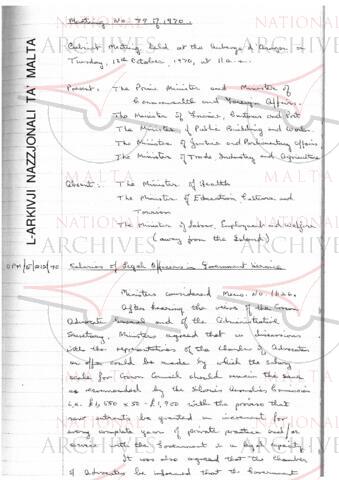 Meeting No. 77 of 1970.
Cabinet Meeting held at the Auberge d'Aragon on
Tuesday, 13th October, 1970, at 11 a.m.
Present: The Prime Minister and Minister of
Commonwealth and Foreign Affairs.
The Minister of Finance, Customs and Port
The Minister of Public Building and Works.
The Minister of Justice and Parliamentary Affairs.
The Minister of Trade Industry and Agriculture
Absent: The Minister of Health
The Minister of Education, Culture and
Tourism
The Minister of Labour, Employment and Welfare
(away from the Island)
Salaries of Legal Officers in Government Service
Ministers considered Memo. No. 1626.
After hearing the views of the Crown
Advocate General and of the Administrative
Secretary, Ministers agreed that in discussions
with the representatives of the Chamber of Advocates
an offer could be made by which the salary
scale for Crown Counsel should remain the same
as recommended by the Salaries Anomalies Commission
i.e. £1,650 x 50 - £1,900 with the proviso that
new entrants be granted an increment for
every complete year of private practice and/or
service with the Government in a legal capacity.
It was also agreed that the Chamber
of Advocates be informed that the Government
L-ARKIVJI NAZZJONALI TA' MALTA
NATIONAL ARCHIVES